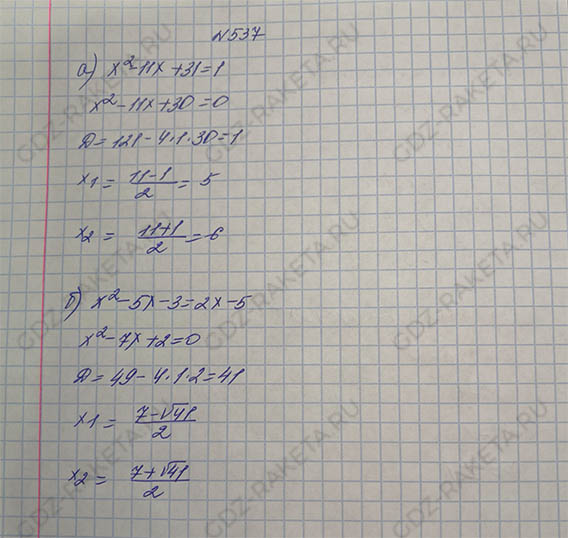 №537
а) x²-11x+31=1
x²-11x+30=0
D=121-4·1·30=1
x1 = (11-1)/2 = 5
x2 = (11+1)/2 = 6
б) x²-5x-3=2x-5
x²-7x+2=0
D=49-4·1·2=41
x1 = (7-√41)/2
x2 = (7+√41)/2
GDZ-RAKETA.RU
GDZ-RAKETA.RU
GDZ-RAKETA.RU
GDZ-RAKETA.RU
GDZ-RAKETA.RU
GDZ-RAKETA.RU
GDZ-RAKETA.RU
GDZ-RAKETA.RU
GDZ-RAKETA.RU